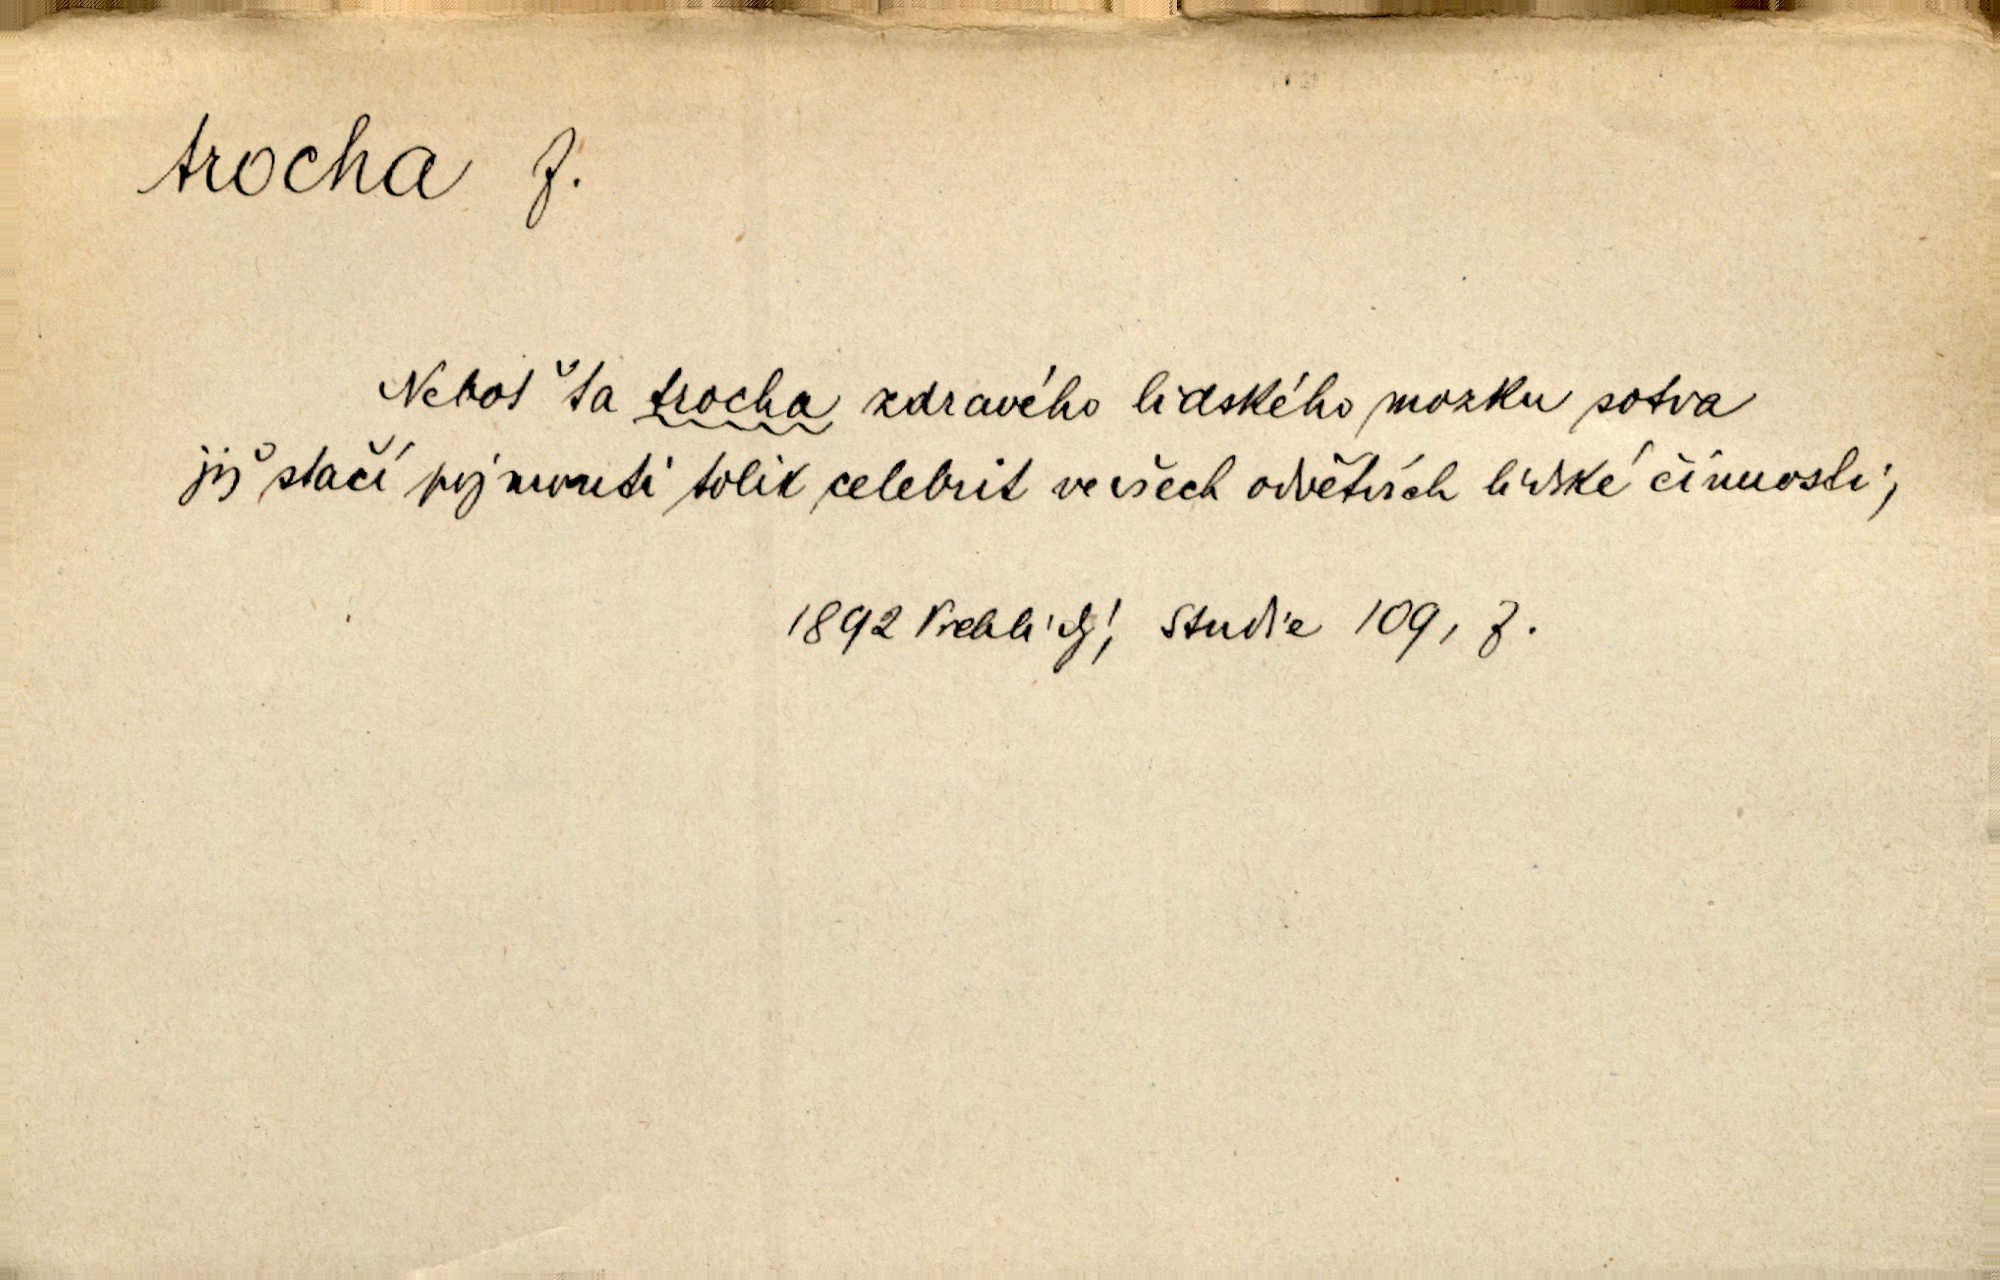 trocha f.
Neboť ta trocha zdravého lidského mozku sotva
již stačí pojmouti tolik celebrit ve všech odvětvích lidské činnosti;
1892 Vrchlický, Studie 109, f.